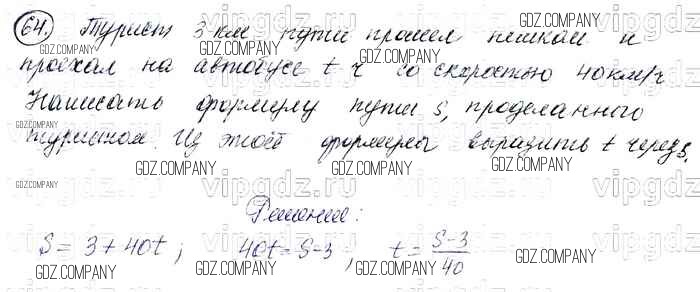 64. Турист 3 км пути прошел пешком и
проехал на автобусе t ч со скоростью 40 км/ч
Написать формулу пути S, проделанного
туристом. Из этой формулы выразить t через S.
Решение:
S = 3 + 40t; 40t = S-3, t = S-3/40
GDZ.COMPANY
vipgdz.ru